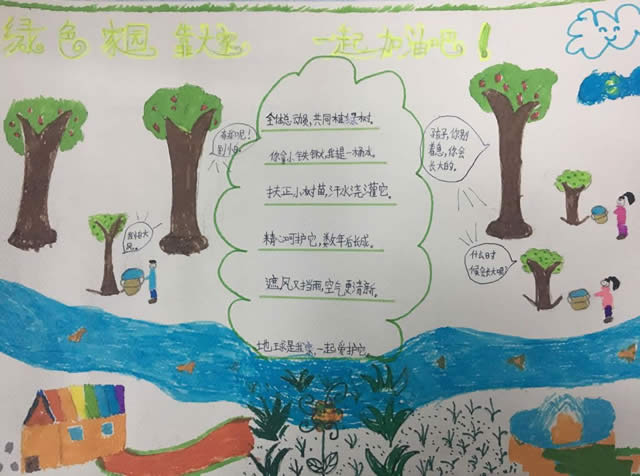 绿色家园 靠大家 一起加油吧！
全体总动员,共同植绿树。
你拿小铁锹,我提一桶水。
扶正小树苗,汗水浇灌它。
精心呵护它,数年后长成。
遮风又挡雨,空气更清新。
地球是我家,一起爱护它。
有我呢！
孩子,你别
着急,你会
长大的。
什么时
候会长大呢?